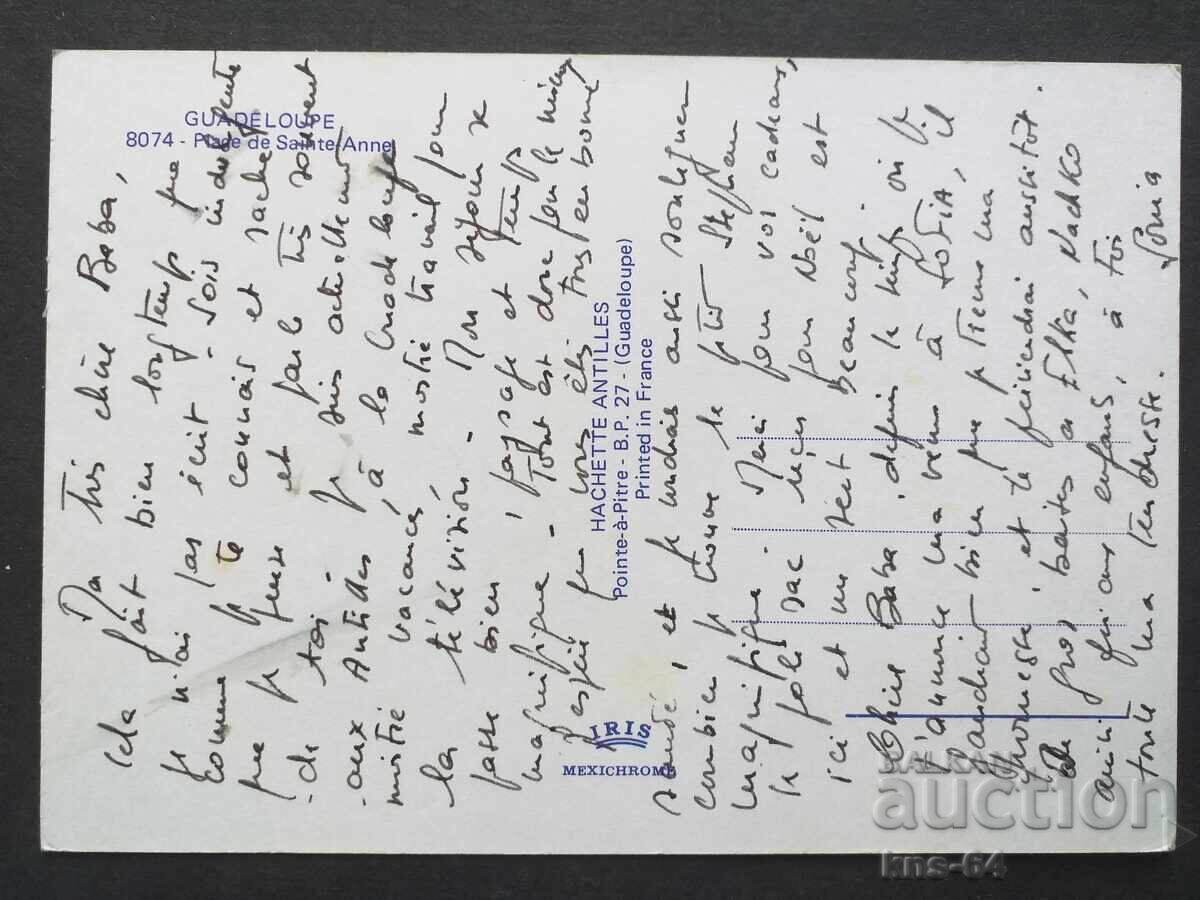 GUADELOUPE
8074 - Plage de Sainte Anne
HACHETTE ANTILLES
Pointe-à-Pitre - B.P. 27 - (Guadeloupe)
Printed in France
IRIS
MEXICHROME
Ma très chère Baba,
Cela fait bien longtemps que
je n'ai pas écrit - Sois indulgente
comme je te connais et sache
que je pense et parle très souvent
de toi - je suis actuellement
aux Antilles, à la Guadeloupe
moitié vacances, moitié travail pour
la télévision - Mon séjour se
passe bien, paysage et temps
magnifique - Tout est donc pour le mieux
J'espère que vous êtes tous en bonne
santé, et je voudrais aussi souligner
combien je trouve le petit Stephan
magnifique. Merci pour vos cadeaux,
le joli sac reçu pour Noël est
ici et me sert beaucoup.
Chère Baba, depuis le temps où je
t'annonce ma venue à SOFIA, il
faudrait bien que je tienne ma
promesse, et te préviendrai aussitôt.
De gros baisers à Elka, Nachko
ainsi qu'aux enfants, à toi
toute ma tendresse. Sonia
BALKAN
auction
kns-64